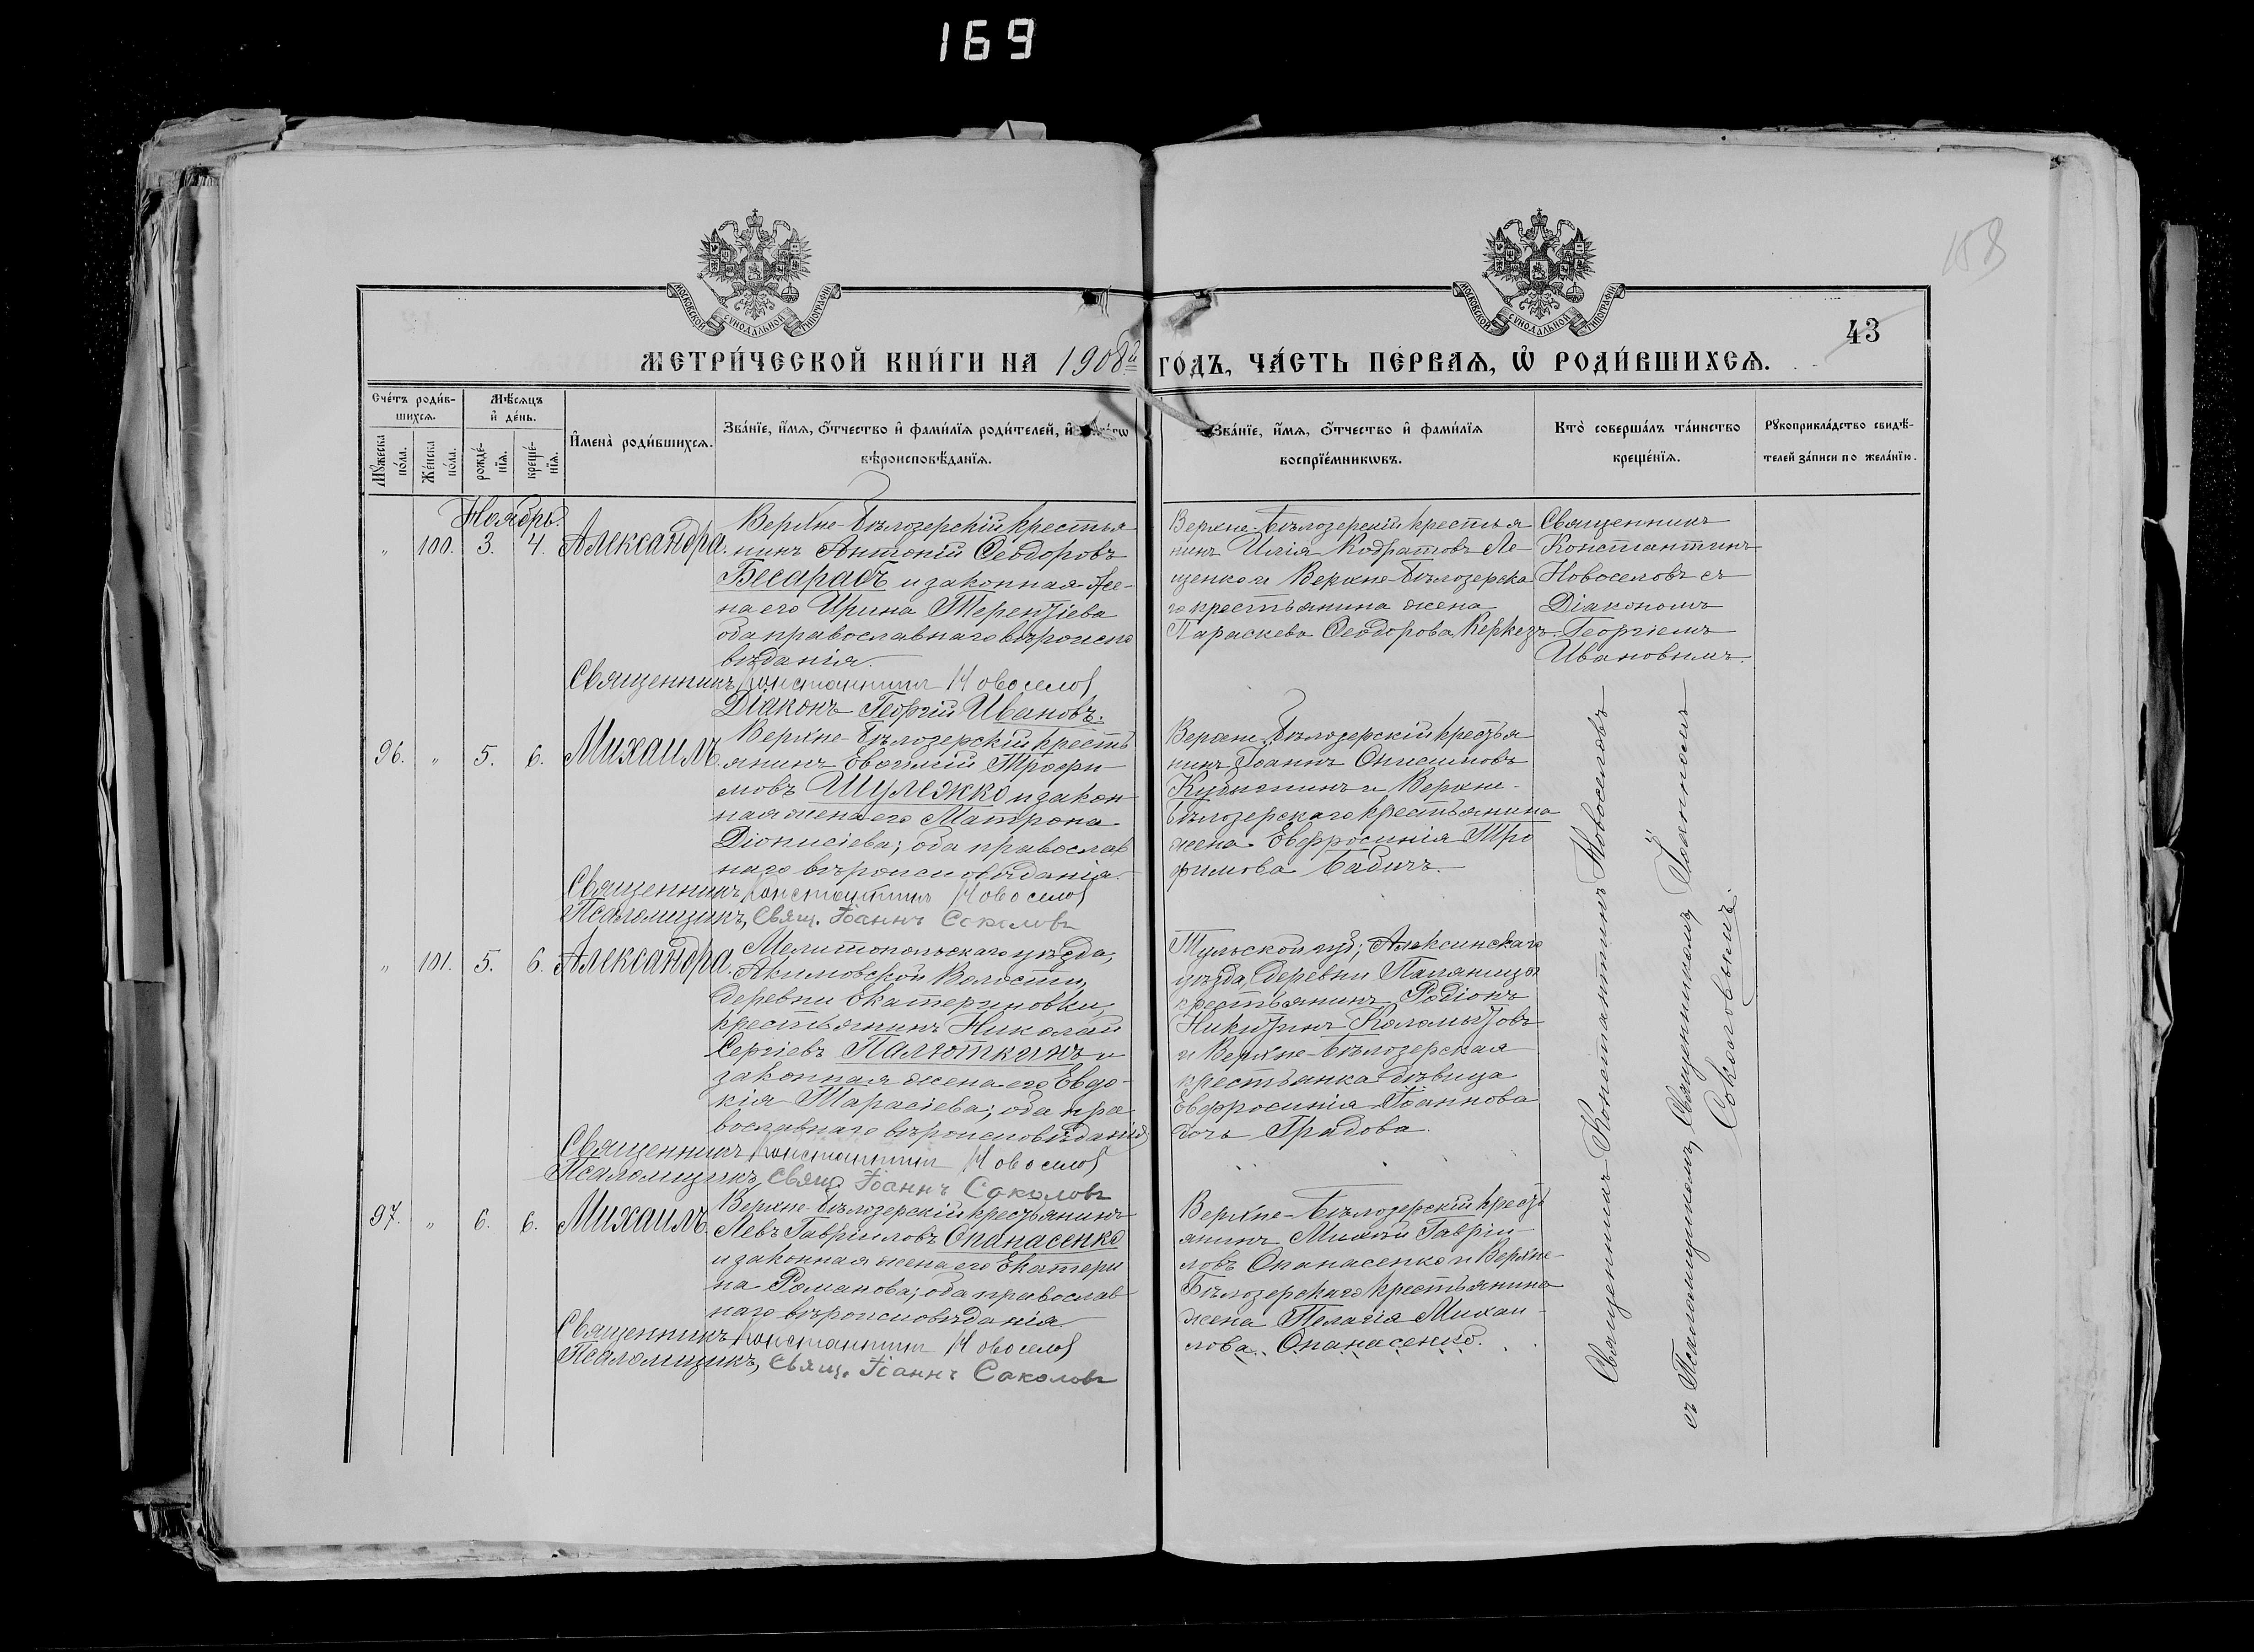 169
158
МОСКОВСКОЙ СѴНОДАЛЬНОЙ ТИПОГРАФІИ
МОСКОВСКОЙ СѴНОДАЛЬНОЙ ТИПОГРАФІИ
43
МЕТРИ́ЧЕСКОЙ КНИ́ГИ НА 1908й ГО́ДЪ, ЧА́СТЬ ПЕ́РВАѦ, Ѡ҆ РОДИ́ВШИХСѦ.
Сче́тъ роди́в-
шихсѧ.
Мѣ́сѧцъ
и҆ де́нь.
Мꙋ́жеска
по́ла.
Же́нска
по́ла.
рожде́-
нїѧ.
креще́-
нїѧ.
И҆мена̀ роди́вшихсѧ.
Зва́нїе, и҆́мѧ, ѻ҆́тчество и҆ фами́лїѧ роди́телей, и҆
вѣроисповѣ́данїѧ.
Зва́нїе, и҆́мѧ, ѻ҆́тчество и҆ фами́лїѧ
воспрїе́мникѡвъ.
Кто̀ соверша́лъ та́инство
креще́нїѧ.
Рꙋкоприкла́дство свидѣ́-
телей за́писи по жела́нїю.
Ноябрь.
„ 100. 3. 4. Александра.
Верхне-Бѣлозерскій крестья
нинъ Антоній Ѳеодоровъ
Бесарабъ и законная же-
на его Ирина Терентіева
оба православнаго вѣроиспо
вѣданія.
Священникъ Константинъ Новоселов
Діаконъ Георгій Ивановъ.
Верхне-Бѣлозерскій крестья
нинъ Илія Кодратовъ Ле-
щенко и Верхне-Бѣлозерска
го крестьянина жена
Параскева Ѳеодорова Керкезъ.
Священникъ
Константинъ
Новоселовъ съ
Діакономъ
Георгіемъ
Ивановымъ.
96. „ 5. 6. Михаилъ.
Верхне-Бѣлозерскій кресть
янинъ Евѳимій Трофи-
мовъ Шулежко и закон-
ная жена его Матрона
Діонисіева; оба православ
наго вѣроисповѣданія.
Священникъ Константинъ Новоселов
Псаломщикъ, Свящ. Іоаннъ Соколовъ
Верхне-Бѣлозерскій крестья
нинъ Іоаннъ Онисимовъ
и Верхне-
Бѣлозерскаго крестьянина
жена Евфросинія Тро
фимова Бабичъ.
„ 101. 5. 6. Александра.
Мелитопольскаго уѣзда,
Акимовской Волости,
деревни Екатериновки,
крестьянинъ Николай
Сергіевъ Палюткинъ и
законная жена его Евдо-
кія Тарасіева; оба пра
вославнаго вѣроисповѣданія
Священникъ Константинъ Новоселов
Псаломщикъ, Свящ. Іоаннъ Соколовъ
Тульской губ; Алексинскаго
уѣзда, деревни
крестьянинъ Родіонъ
Никитинъ Коломытовъ
и Верхне-Бѣлозерская
крестьянка дѣвица
Евфросинія Іоаннова
дочь Градова.
97. „ 6. 6. Михаилъ.
Верхне-Бѣлозерскій крестьянинъ
Левъ Гавріиловъ Опанасенко
и законная жена его Екатери
на Романова; оба православ
наго вѣроисповѣданія
Священникъ Константинъ Новоселов
Псаломщикъ, Свящ. Іоаннъ Соколовъ
Верхне-Бѣлозерскій кресть
янинъ Михей Гавріи-
ловъ Опанасенко и Верхне-
Бѣлозерскаго крестьянина
жена Пелагія Михаи-
лова Опанасенко.
Священникъ Константинъ Новоселовъ
съ Псаломщикомъ, Священникомъ Іоанномъ
Соколовымъ.